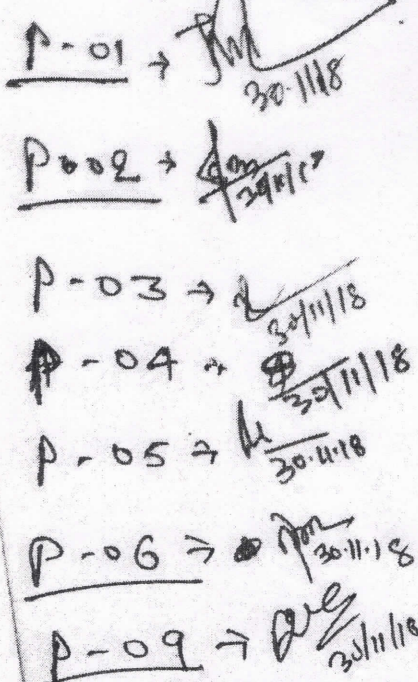 P-01 → 30.11.18
P002 → 30/11/18
P-03 → 30/11/18
P-04 → 30/11/18
P-05 → 30.11.18
P-06 → 30.11.18
P-09 → 30/11/18